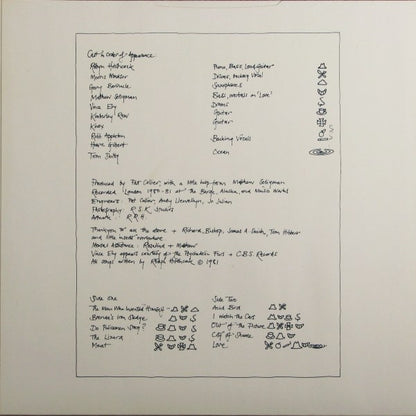 Cast in order of Appearance
Robyn Hitchcock Piano, Bass, Lead Guitar
Morris Windsor Drums, backing vocal
Gary Barnacle Saxophones
Matthew Seligman Bass, vocals in 'Love'
Vince Ely Drums
Kimberley Rew Guitar
Knox Guitar
Rod Appleton Backing Vocals
Howe Gilbert
Tom Dolby Ocean
Produced by Pat Collier, with a little help from Matthew Seligman
Recorded London 1980-81 at the Barge, Alaska, and Music Works
Engineers: Pat Collier, Andy Llewellyn, Jo Julian
Photography: R.S.K. Studios
Artwork: R.R.H.
Thankyou to all the above + Richard Bishop, James A. Smith, Tom Hibbert
and little insects everywhere
Morale Assistance: Rosalind + Matthew
Vince Ely appears courtesy of the Psychedelic Furs + C.B.S. Records
All songs written by Robyn Hitchcock © 1981
Side One
The Man Who Invented Himself
Brenda's Iron Sledge
Do Policemen Sing?
The Lizard
Meat
Side Two
Acid Bird
I Watch the Cars
Out of the Picture
City of Shame
Love